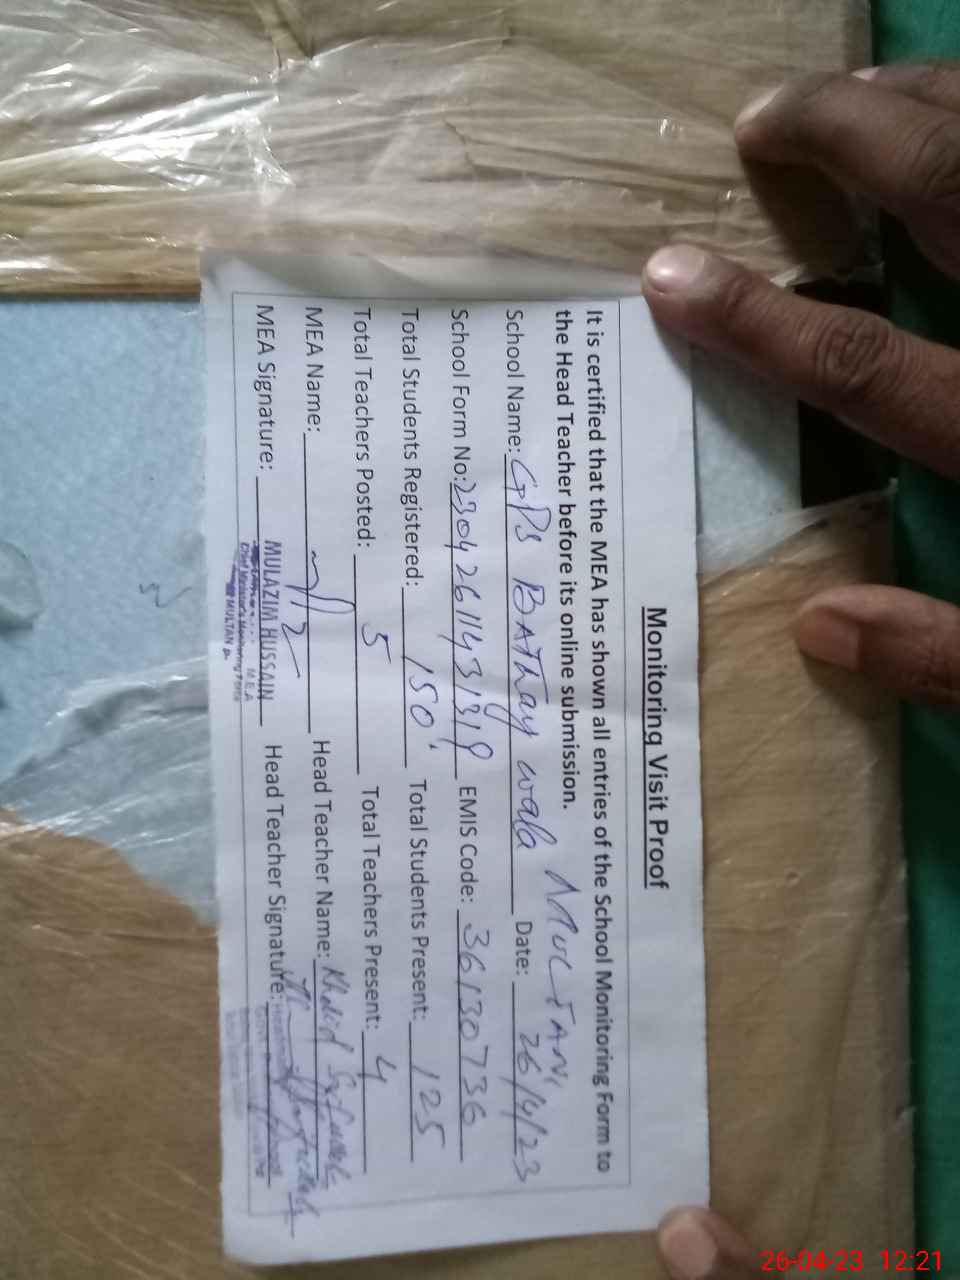 Monitoring Visit Proof
It is certified that the MEA has shown all entries of the School Monitoring Form to
the Head Teacher before its online submission.
School Name: GPS BATHAy wala MULTAN Date: 26/4/23
School Form No: 23042611431319 EMIS Code: 36130736
Total Students Registered: 150 Total Students Present: 125
Total Teachers Posted: 5 Total Teachers Present: 4
MEA Name: Head Teacher Name: Khalid
MEA Signature: MULAZIM HUSSAIN Head Teacher Signature:
M.E.A
Chief Minister's Monitoring Force
MULTAN
26-04-23 12:21